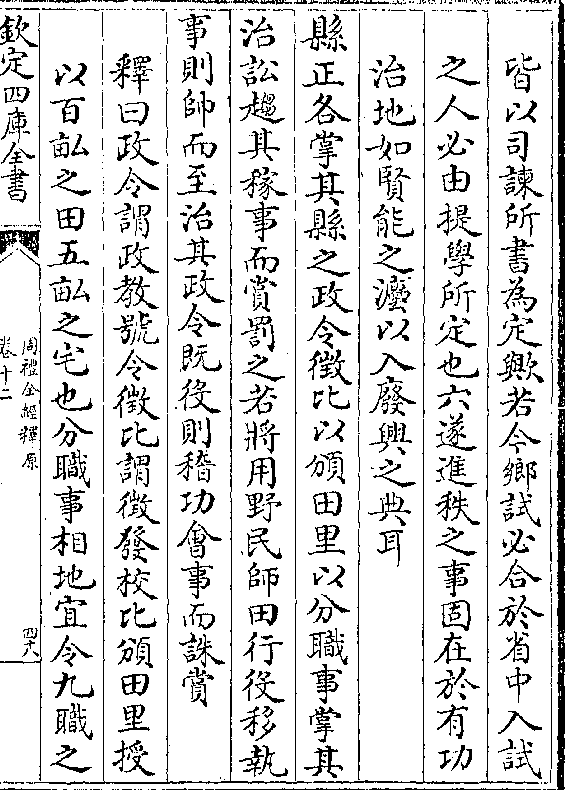 皆以司諫所書為定歟若今鄉試必合於省中入試
之人必由提學所定也六遂進秩之事固在於有功
治地如賢能之灋以入廢興之典耳
縣正各掌其縣之政令徵比以頒田里以分職事掌其
治訟趨其稼事而賞罰之若將用野民師田行役移執
事則帥而至治其政令既役則稽功會事而誅賞
釋曰政令謂政教號令徵比謂徵發校比頒田里授
以百畝之田五畝之宅也分職事相地宜令九職之
欽定四庫全書
周禮全經釋原
卷十二
四六